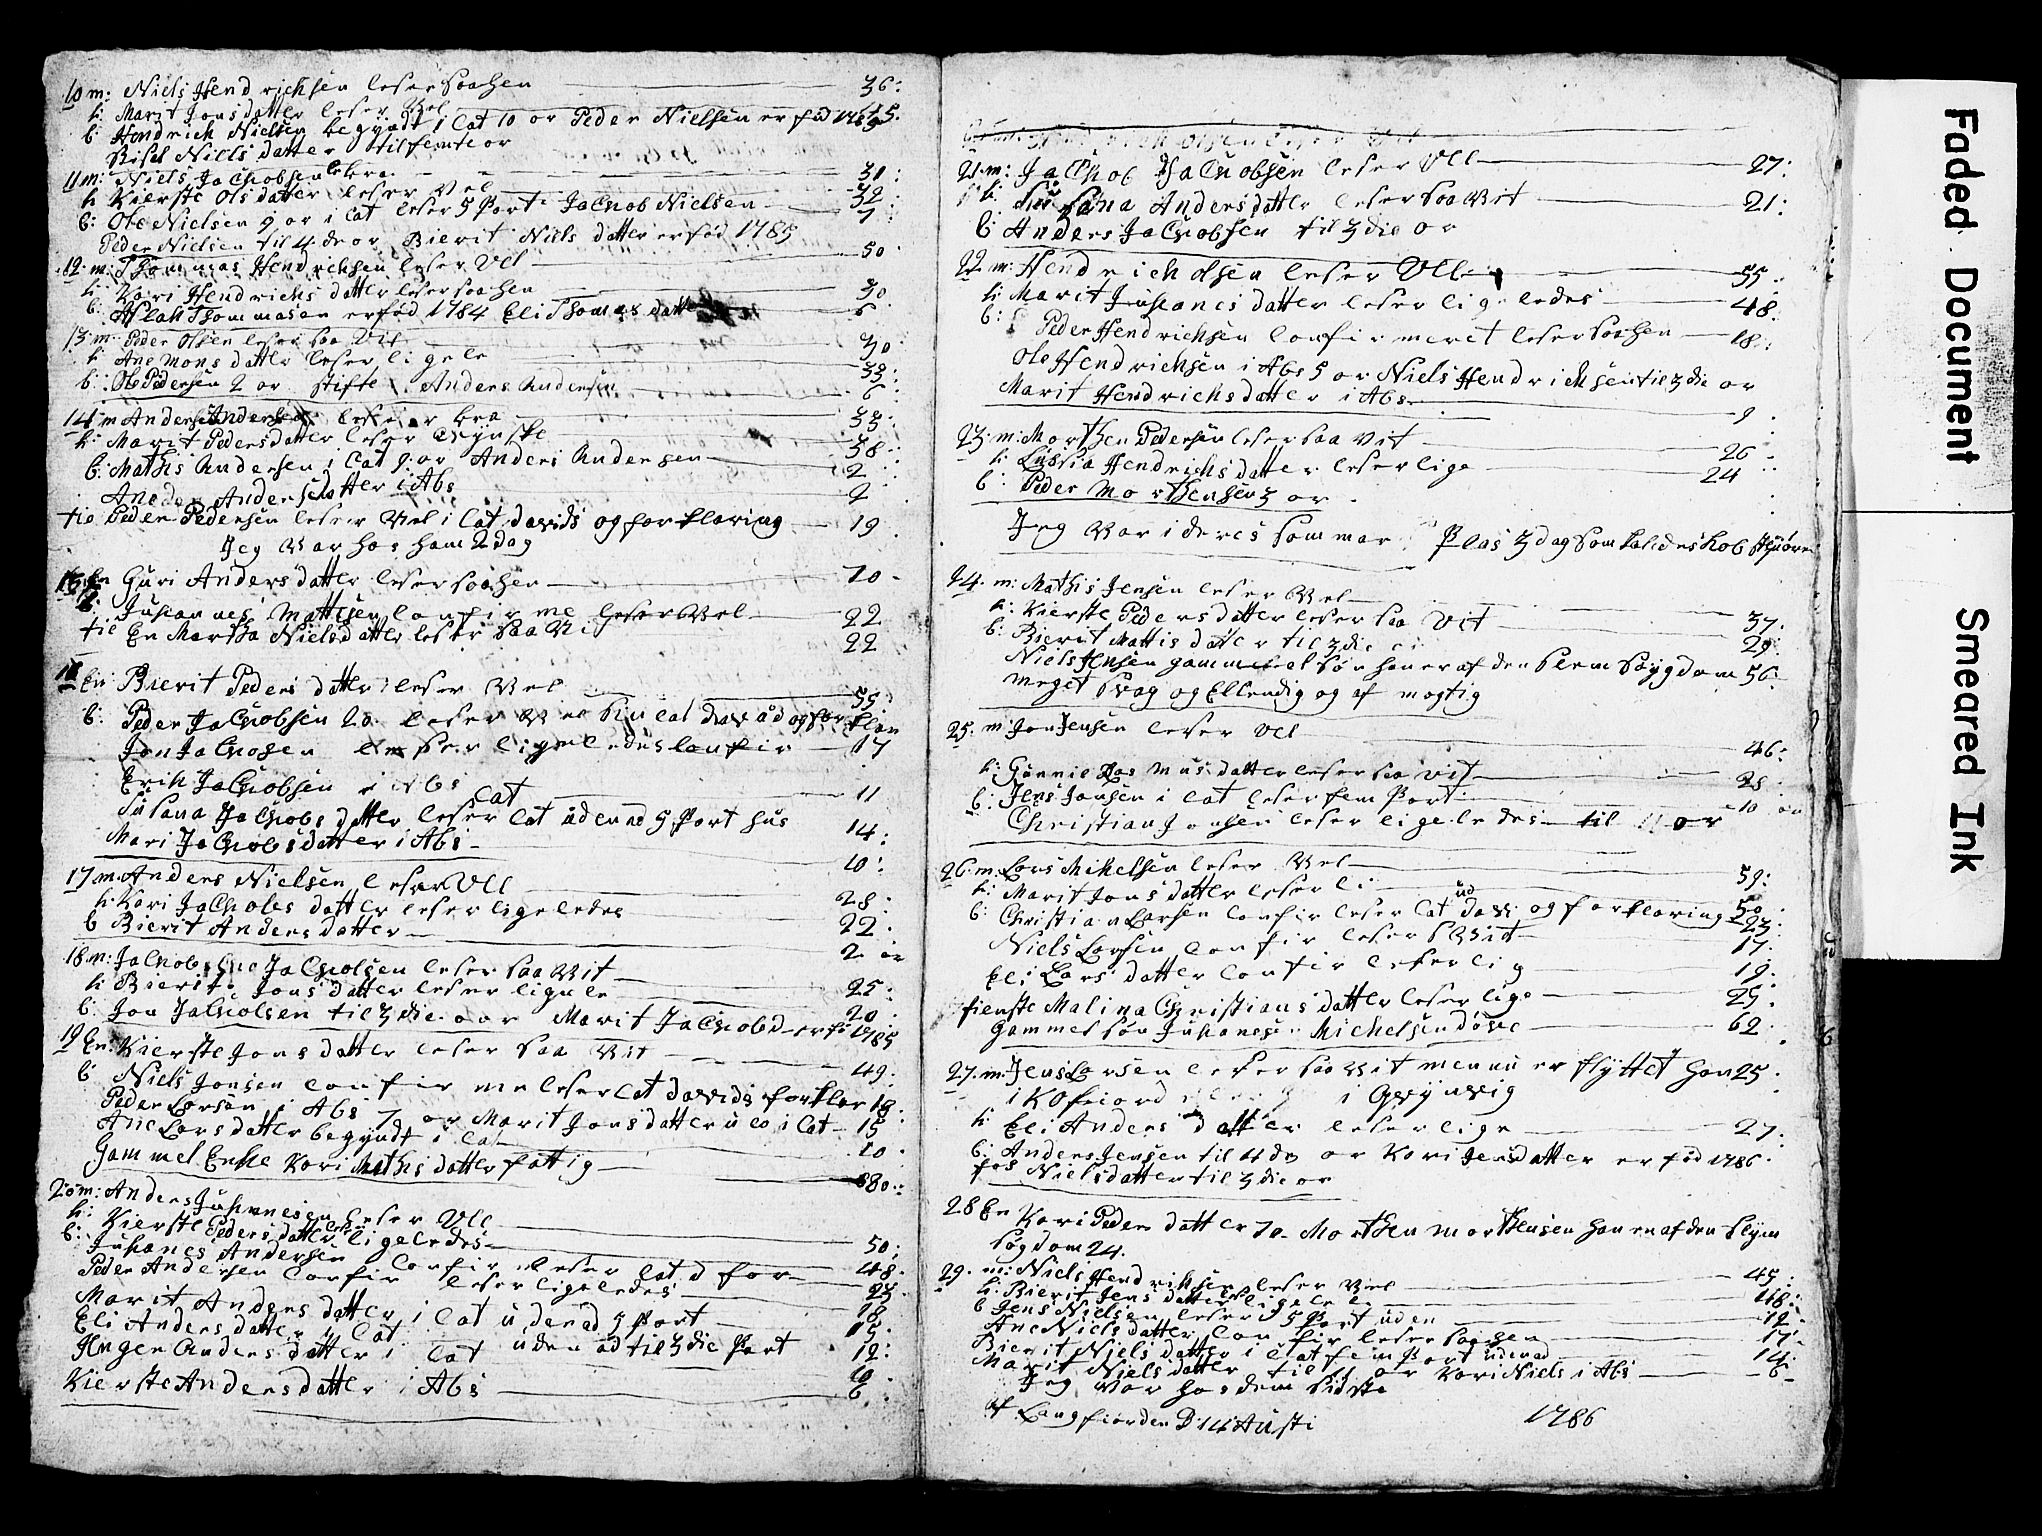 10 m: Niels Hendrichsen leser saahen 36:
k: Marit Jonsdatter leser Vel
b: Hendrich Nielsen begyndt i Cat 10 or Peder Nielsen er fød
Nielsdatter til femte or
11 m: Niels Jacobsen bra 31:
k Kierste Olsdatter leser Vel 32
b: Ole Nielsen 9 or i Cat leser 5 Part Jachob Nielsen 7
Peder Nielsen til 4 de or Bierit Niels datter er fød 1785
12 m: Thommas Hendrichsen leser Vel 50
k: Kari Hendrichs datter leser saahen 30
b: Thommasen er fød 1784 Eli Thomas datter 6
13 m: Peder Olsen leser saa Vit 30
k: Ane Mons datter leser ligele 33
b: Ole Pedersen 2 or stifte Anders Andersen 6
14 m Anders Andersen leser bra 33
k: Marit Pedersdatter leser 38
b: Mathis Andersen i Cat 9 or Anders Andersen 2
Ane Andersdatter i Abs 2
tie Peder Pedersen leser Vel i Cat davids og forklaring 19
Jeg Var hos ham 2 dag
15 En Guri Anders datter leser saahen 70
b: Juhannes Mattisen confirme leser Vel 22
til En Martha Nielsdatter leser saa Vi 22
16 En: Bierit Peders datter leser Vel 55:
b: Peder Jachobsen 20 leser Vel cat og forklar
Jon Jachobsen leser ligeledes confir 17
Erik Jachobsen i Abs 11
Susana Jachobs datter leser Cat uden ad 5 Part hus 14:
Mari Jachobsdatter i Abs 10:
17 m. Anders Nielsen leser Vel 28:
k: Kari Jachobs datter leser ligeledes 22
b Bierit Anders datter 2 or
18 m: Jachob Jachobsen leser saa Vit 25:
k Bierit Jons datter leser ligele 20:
b: Jon Jachobsen til 3 die aar Marit Jachobsd er fø 1785
19 En: Kierste Jons datter leser saa Vit 49:
b Niels Jonsen confirme leser Cat davids forklar 18
Peder Larsen i Abs 7 or Marit Jonsdatter i Cat 15
Ane Larsdatter begyndt i Cat 10
Gammel Enke Kari Mathis datter fattig 80:
20 m: Anders Juhanesen leser Vel 50:
k: Kierste Pedersdatter ligeledes 48:
b: Juhanes Andersen Confir leser Cat d for 25
Peder Andersen Confir leser ligeledes 18
Marit Anders datter i Cat uden ad 5 Part 15:
Eli Anders datter i Cat 12:
Inger Anders datter i Cat uden ad til 3 die Part 10
Kierste Anders datter i Abs 6
21 m: Jachob Jachobsen leser Vel 27:
k: Susana Anders datter leser saa Vit 21:
b Anders Jachobsen til 3 die or
22 m: Hendrich Olsen leser Vel 55
k: Marit Juhanes datter leser ligeledes 48
b: Peder Hendrichsen Confirmeret leser saahen 18
Ole Hendrichsen i Abs 5 or Niels Hendrichsen til 3 die or
Marit Hendrichsdatter i Abs 9
23 m: Morthen Pedersen leser saa Vit 26
k Lussia Hendrichs datter leser lige 24
b: Peder Morthensen 3 or
Jeg Var i deres sommar Plas 3 dag som kaldes
24 m: Mathis Jensen leser Vel 37:
k: Kierste Peders datter leser saa Vit 29:
b: Bierit Mattis datter til 3 die
Niels Jensen gammel søn han er af den slem sygdom 56
meget svag og Ellendig og af mogtig
25 m Jon Jensen leser Vel 46:
k: Gunnil Rasmus datter leser saa Vit 28
b: Jens Jonsen i Cat leser fem Part 10 or
Christian Jonsen leser ligeledes til 11 or
26 m: Lars Mikelsen leser Vel 59:
k: Marit Jons datter leser li 50
b: Christian Larsen Confir leser Cat ud davi og forklaring 23
Niels Larsen Confir leser s Vit 17:
Eli Lars datter Confir leser lig 19:
tieneste Malina Christians datter leser lige 25:
Gammel søn Juhanes Michelsen døve 62
27 m: Jens Larsen leser saa Vit men nu er flyttet han 25
i Kofiord i Qvynvig
k Eli Anders datter leser lige 27:
b: Anders Jensen til 4 de or Kari Jensdatter er fød 1786
Nielsdatter til 3 die or
28 En Kari Peders datter 70 Morthen Morthensen han er af den slem
søgdom 24.
29. m: Niels Hendrichsen leser Vel 45:
k: Bierit Jens datter ligele 48:
b Jens Nielsen leser 5 Part uden 12
Ane Niels datter Confir leser saahen 17
Bierit Niels datter i Cat fem Part uden ad 14:
Marit Niels datter til or Kari Niels i Abs 6
Jeg Var hos dem sidste
af Langfiorden D 14 Austi 1786
Faded Document
Smeared Ink